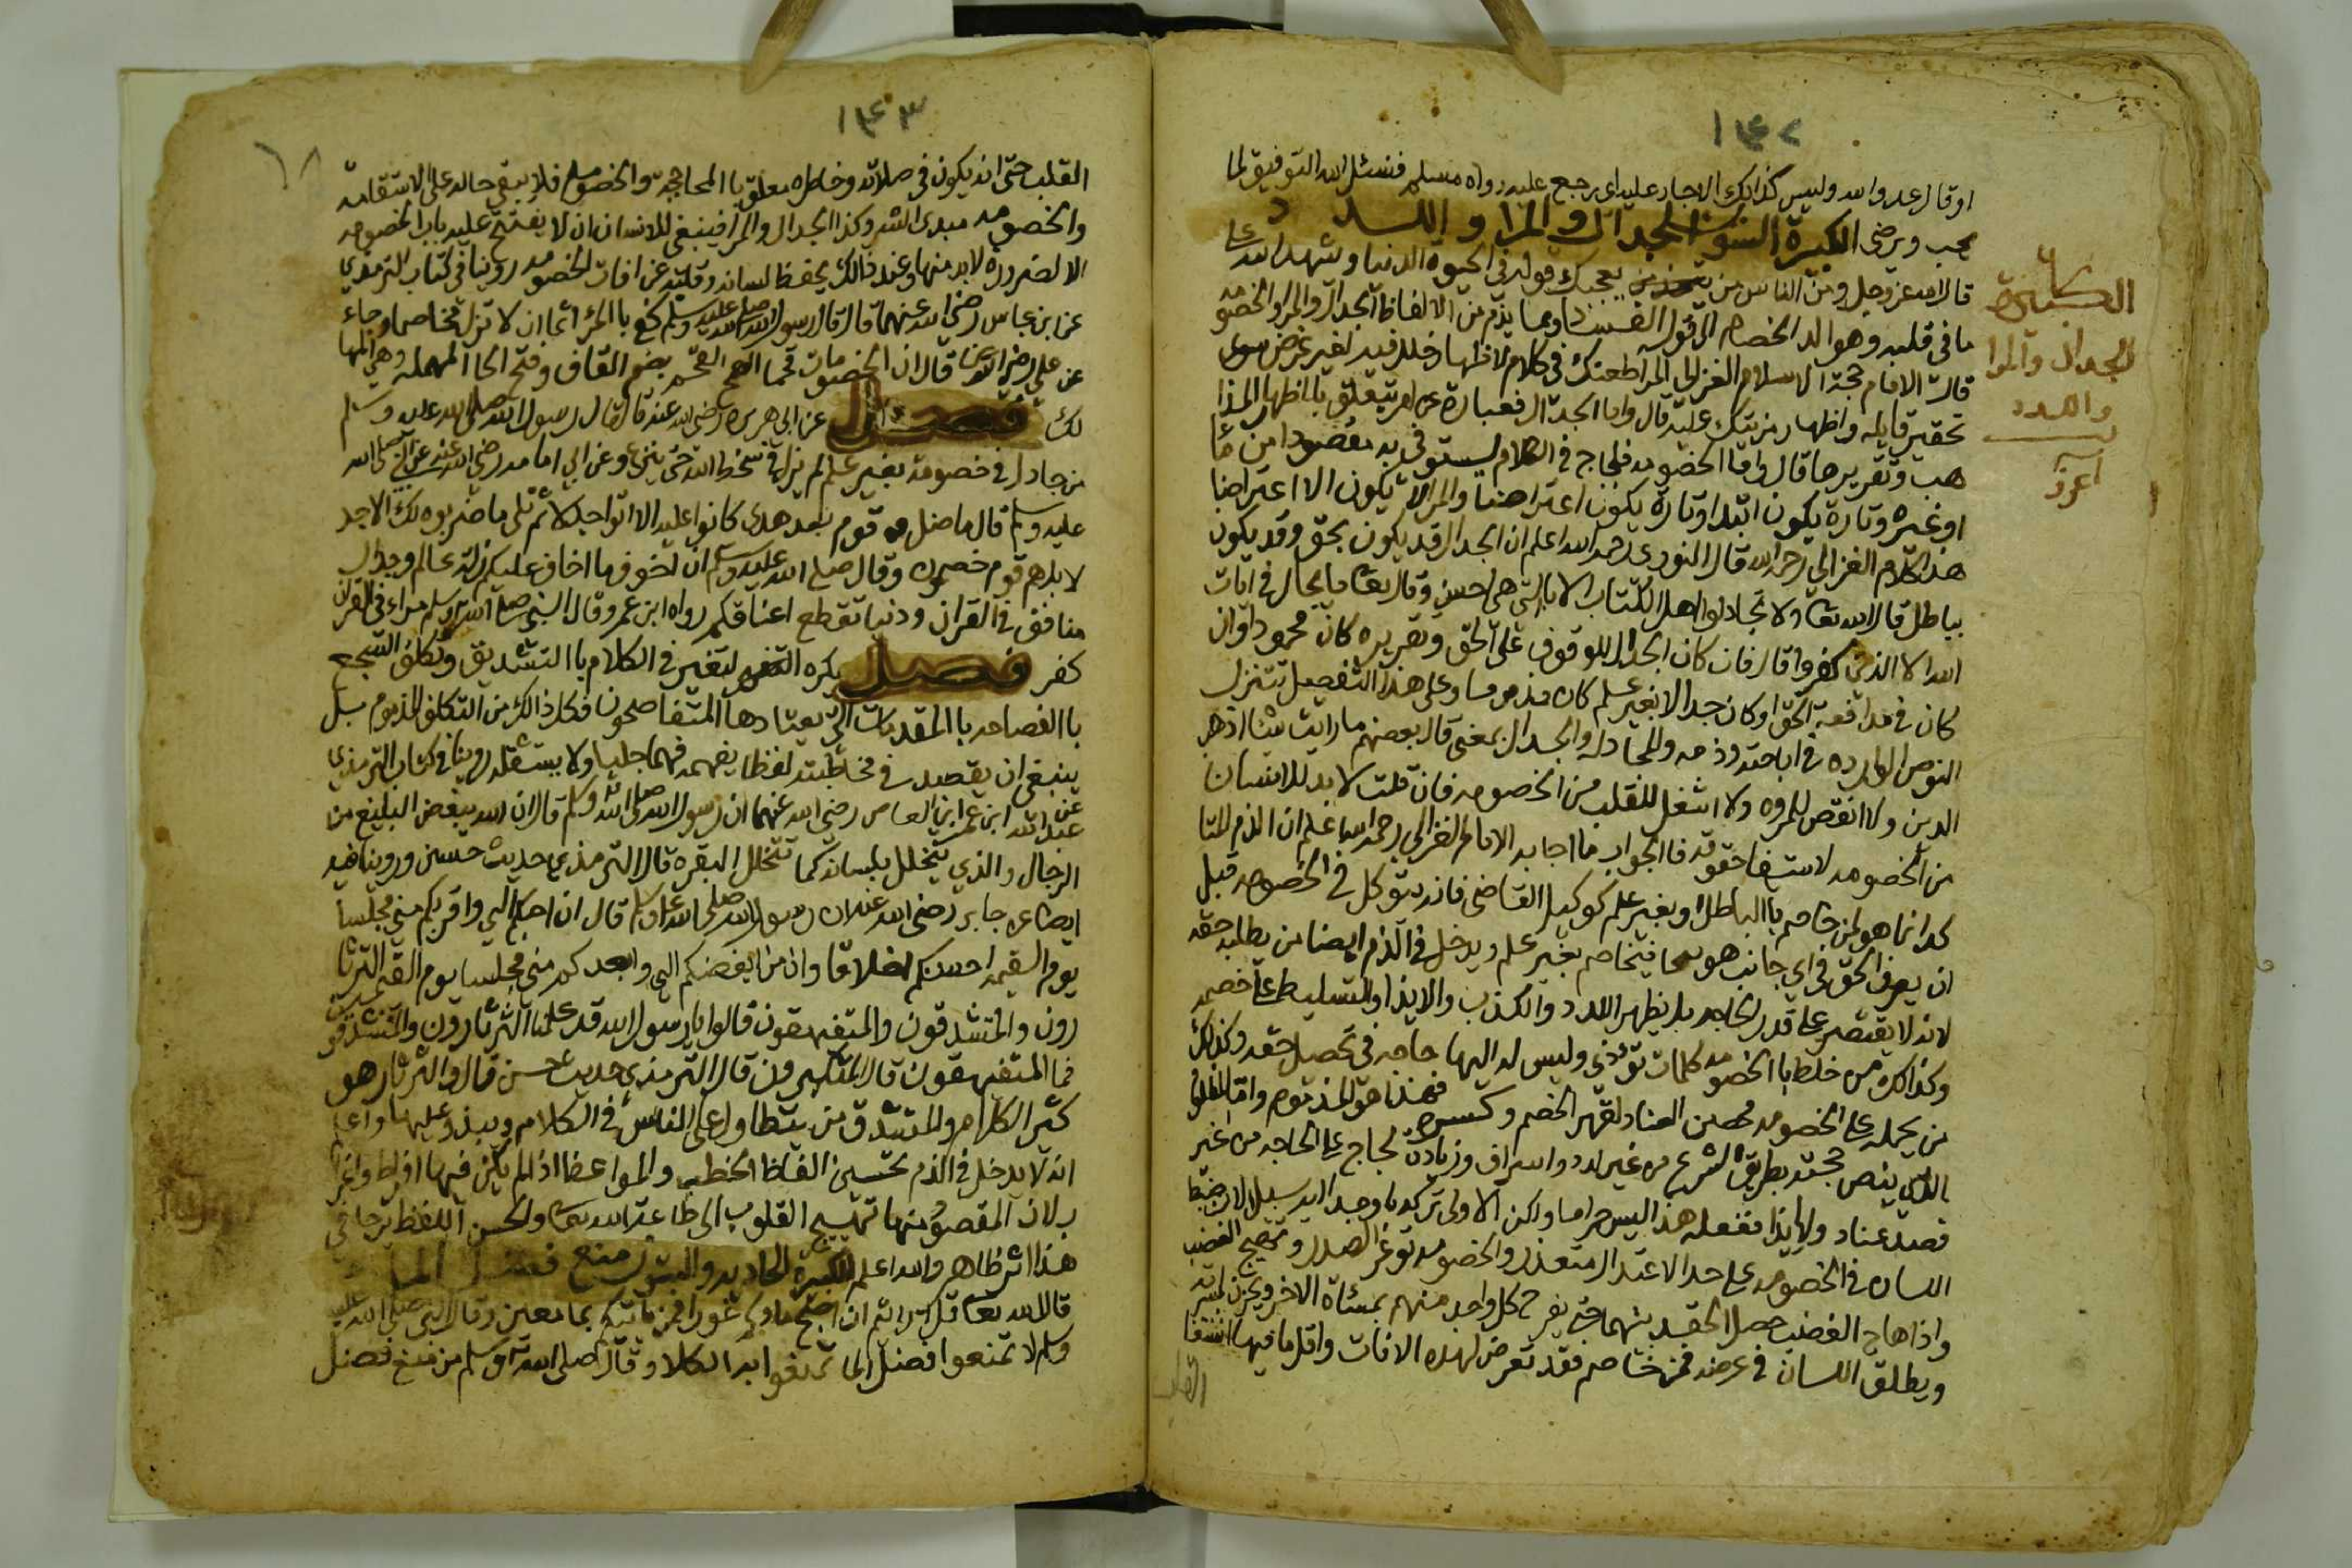 ١٤٢
او قال عدو الله وليس كذالك الا جار عليه اي رجع عليه رواه مسلم فنسئل الله التوفيق لما
يحب ويرضى الكبيرة الستون الجدال والمرا واللدد
قال الله عز وجل ومن الناس من يعجبك قوله في الحيوة الدنيا ويشهد الله على
ما في قلبه وهو الد الخصام الى قوله الفساد ومما يذم من الالفاظ الجدال والمرا والخصومه
قال الامام حجة الاسلام الغزالي المرا طعنك في كلام لاظهار خلل فيه لغير غرض سوى
تحقير قايله واظهار مزيتك عليه قال واما الجدال فعبارة عن امر يتعلق باظهار المذا
هب وتقريرها قال واما الخصومه فلجاج في الكلام ليستوفي به مقصودا من مال
او غيره وتارة يكون ابتداء وتارة يكون اعتراضا والمرا لا يكون الا اعتراضا
هذا كلام الغزالي رحمه الله قال النووي رحمه الله اعلم ان الجدال قد يكون بحق وقد يكون
بباطل قال الله تعا ولا تجادلوا اهل الكتاب الا بالتي هي احسن وقال تعا ما يجادل في ايات
الله الا الذين كفروا قال فان كان الجدال للوقوف على الحق وتقريره كان محمودا وان
كان في مدافعة الحق او كان جدالا بغير علم كان مذموما وعلى هذا التفصيل تتنزل
النوص الوارده في اباحته وذمه والمجادله والجدال بمعنى قال بعضهم ما رايت شيئا اذهب
الدين ولا انقص للمروه ولا اشغل للقلب من الخصومه فان قلت لا بد للانسان
من الخصومه لاستيفا حقوقه فالجواب ما اجاب به الامام الغزالي رحمه الله اعلم ان الذم المتا
كد انما هو لمن خاصم با الباطل او بغير علم كوكيل القاضي فانه يتوكل في الخصومه قبل
ان يعرف الحق في اي جانب هو فيخاصم بغير علم ويدخل في الذم ايضا من يطلب حقه
لانه لا يقتصر على قدر الحاجه بل يظهر اللدد والكذب والايذا والتسليط على خصمه
وكذالك من خلط با الخصومه كلمات تؤذي وليس له اليها حاجه في تحصيل حقه وكذلك
من يحمله على الخصومه محض العناد لقهر الخصم وكسره فهذا هو المذموم واما المظلوم
الذي ينص حجته بطريق الشرع من غير لدد واسراف وزيادة لجاج على الحاجه من غير
قصد عناد ولا ايذا ففعله هذا ليس حراما ولكن الاولى تركه ما وجد اليه سبيلا لان ضبط
اللسان في الخصومه على حد الاعتدال متعذر والخصومه توغر الصدر وتهيج الغضب
واذا هاج الغضب حصل الحقد بينهما حتى يفرح كل واحد منهم بمساة الاخر ويحزن لمسرته
ويطلق اللسان في عرضه فمن خاصم فقد تعرض لهذه الافات واقل ما فيها اشتغا
القلب
الكبيرة
الجدال والمرا
واللدد
١٤٣
القلب حتى انه يكون في صلاته وخاطره معلق با المحاججة والخصومه فلا يبقي حاله على الاستقامة
والخصومه مبدى الشر وكذا الجدال والمرا فينبغي للانسان ان لا يفتح عليه باب الخصومه
الا لضروره لا بد منها وعند ذالك يحفظ لسانه وقلبه عن افات الخصومه روينا في كتاب الترمذي
عن ابن عباس رضي الله عنهما قال قال رسول الله صلى الله عليه وسلم كفى با المرء اثما ان لا تزل مخاصما وجاء
عن علي رضي الله عنه قال ان الخصومات قحما القحم بضم القاف وفتح الحا المهمله وهي المها
لك فصل عن ابي هريره رضي الله عنه قال قال رسول الله صلى الله عليه وسلم
من جادل في خصومة بغير علم لم يزل في سخط الله حتى ينزع وعن ابي امامه رضي الله عنه عن النبي صلى الله
عليه وسلم قال ما ضل قوم بعد هدى كانوا عليه الا اتوا جدلا ثم تلى ما ضربوه لك الا جد
لا بل هم قوم خصمون وقال صلى الله عليه وسلم ان اخوف ما اخاف عليكم زلة عالم وجدال
منافق في القران ودنيا تقطع اعناقكم رواه ابن عمر وقال النبي صلى الله عليه وسلم مراء في القران
كفر فصل يكره التقعير في الكلام با التشديق وتكلف السجع
با الفصاحه با المقدمات التي يعتادها المتفاصحون فكل ذالك من التكلف المذموم بل
ينبغي ان يقصد في مخاطبته لفظا يفهمه فهما جليا ولا يستثقله روينا في كتاب الترمذي
عن عبد الله ابن عمر ابن العاص رضي الله عنهما ان رسول الله صلى الله وسلم قال ان الله يبغض البليغ من
الرجال والذي يتخلل بلسانه كما تتخلل البقره قال الترمذي حديث حسن وروينا فيه
ايضا عن جابر رضي الله عنه ان رسول الله صلى الله عليه وسلم قال ان احبكم الي واقربكم مني مجلسا
يوم القيمه احسنكم اخلاقا وان من ابغضكم الي وابعدكم مني مجلسا يوم القيمه الثرثا
رون والمتشدقون والمتفيهقون قالوا يا رسول الله قد علمنا الثرثارون والمتشدقون
فما المتفيهقون قال المتكبرون قال الترمذي حديث حسن قال والثرثار هو
كثير الكلام والمتشدق من يتطاول على الناس في الكلام ويبذو عليهم واعلم
انه لا يدخل في الذم تحسين الفاظ الخطب والمواعظ اذا لم يكن فيها افراط واغرا
ب لان المقصود منها تهييج القلوب الى طاعة الله تعا ولحسن اللفظ ترجا في
هذا اثر ظاهر والله اعلم الكبيرة الحاديه والستون منع فضل الما
قال الله تعا قل ارايتم ان اصبح ماوكم غورا فمن ياتيكم بما معين وقال النبي صلى الله عليه
وسلم لا تمنعوا فضل الما تمنعوا به الكلا وقال صلى الله عليه وسلم من منع فضل